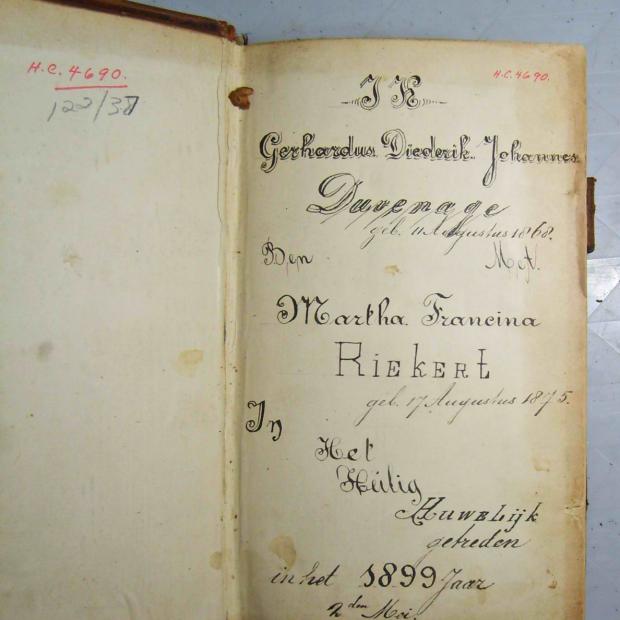 H.C. 4690.
122/37
H.C. 4690.
IK
Gerhardus Diederik Johannes
Duvenage
geb. 11 Augustus 1868.
Ben Met.
Martha Francina
RIEKERT
geb. 17 Augustus 1875.
In
Het
Hülig
HUWELIJK
getreden
in het 1899 Jaar
2den Mei.